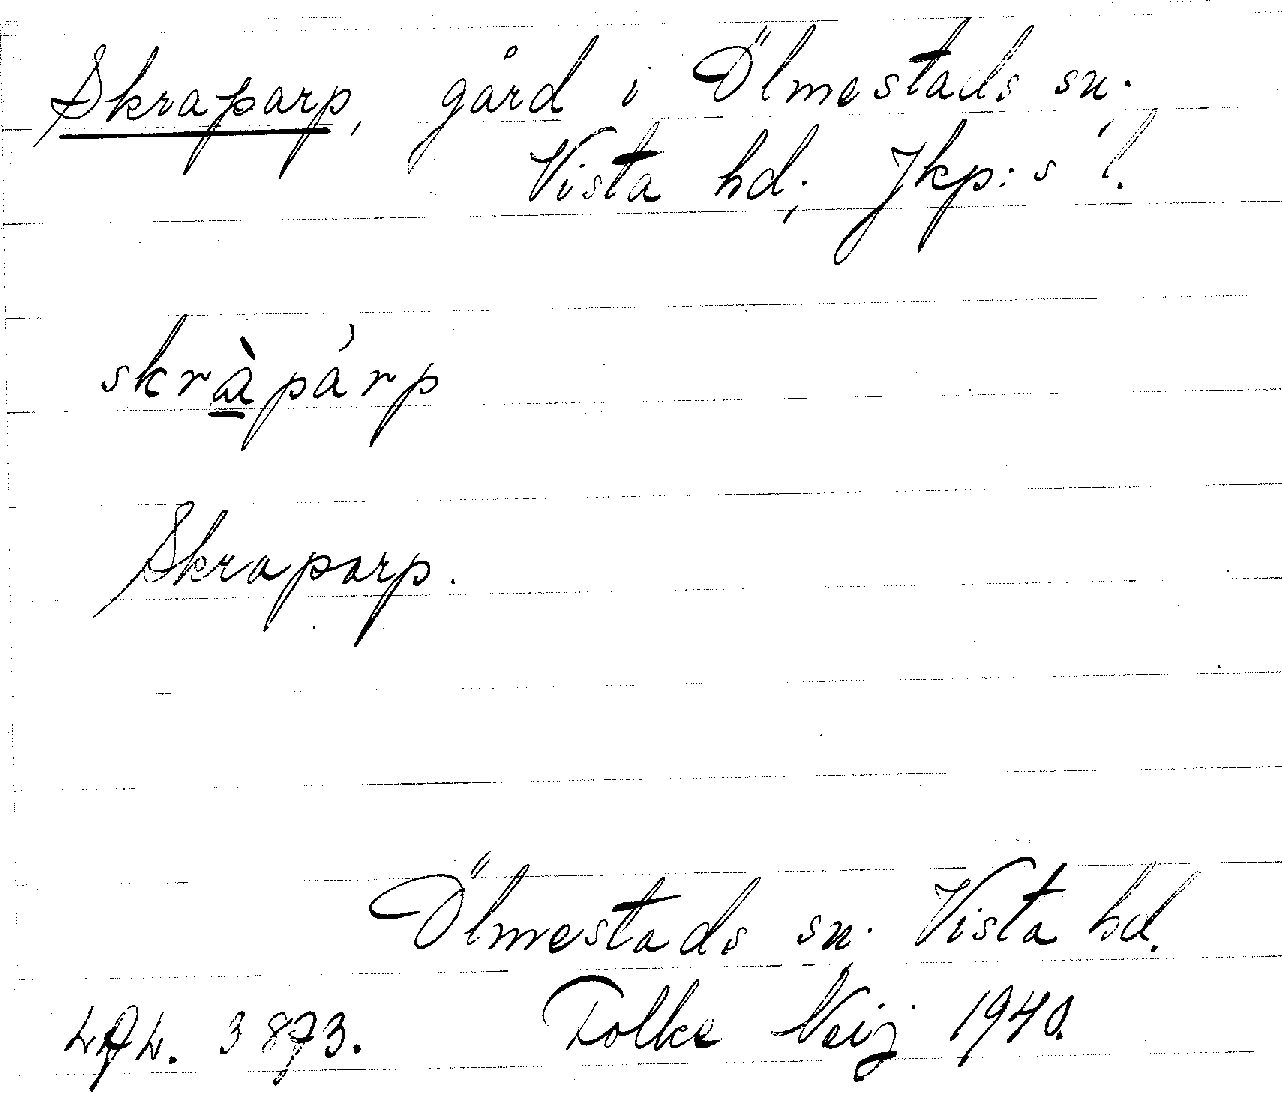 Skraparp, gård i Ölmestads sn.,
Vista hd., Jkp:s l.
skràpárp
Skraparp.
Ölmestads sn. Vista hd.
3873. Folke Neij 1940.